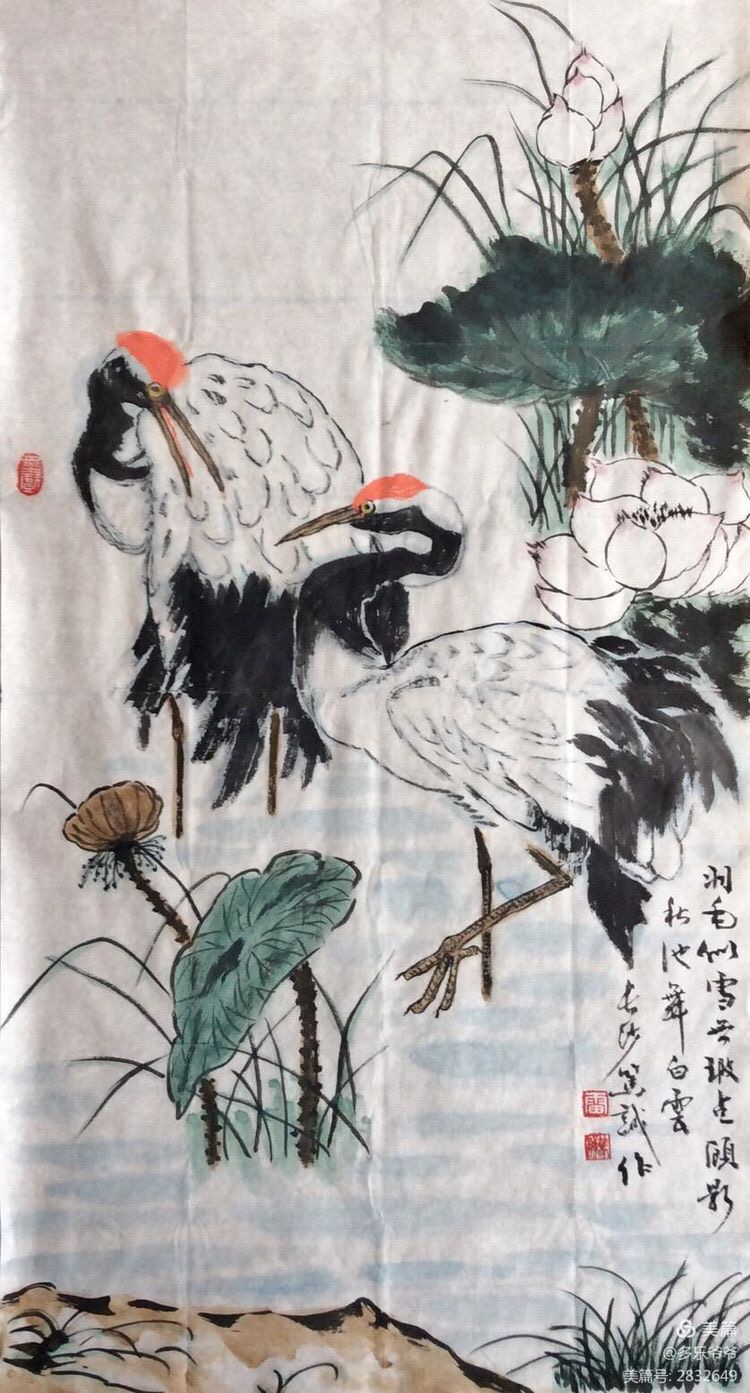 羽毛似雪无瑕点顾影
秋池舞白雲
长沙笃誠作
美篇
@多乐爷爷
美篇号: 2832649